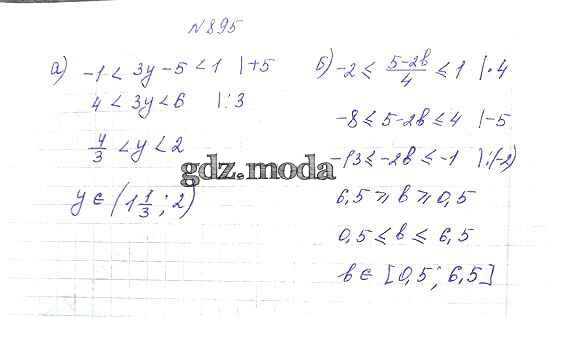 №895
а) -1 < 3y - 5 < 1 | +5
4 < 3y < 6 | : 3
4/3 < y < 2
y ∈ (1 1/3 ; 2)
б) -2 ≤ (5-2b)/4 ≤ 1 | · 4
-8 ≤ 5-2b ≤ 4 | -5
-13 ≤ -2b ≤ -1 | : (-2)
6,5 ≥ b ≥ 0,5
0,5 ≤ b ≤ 6,5
b ∈ [0,5 ; 6,5]
gdz.moda